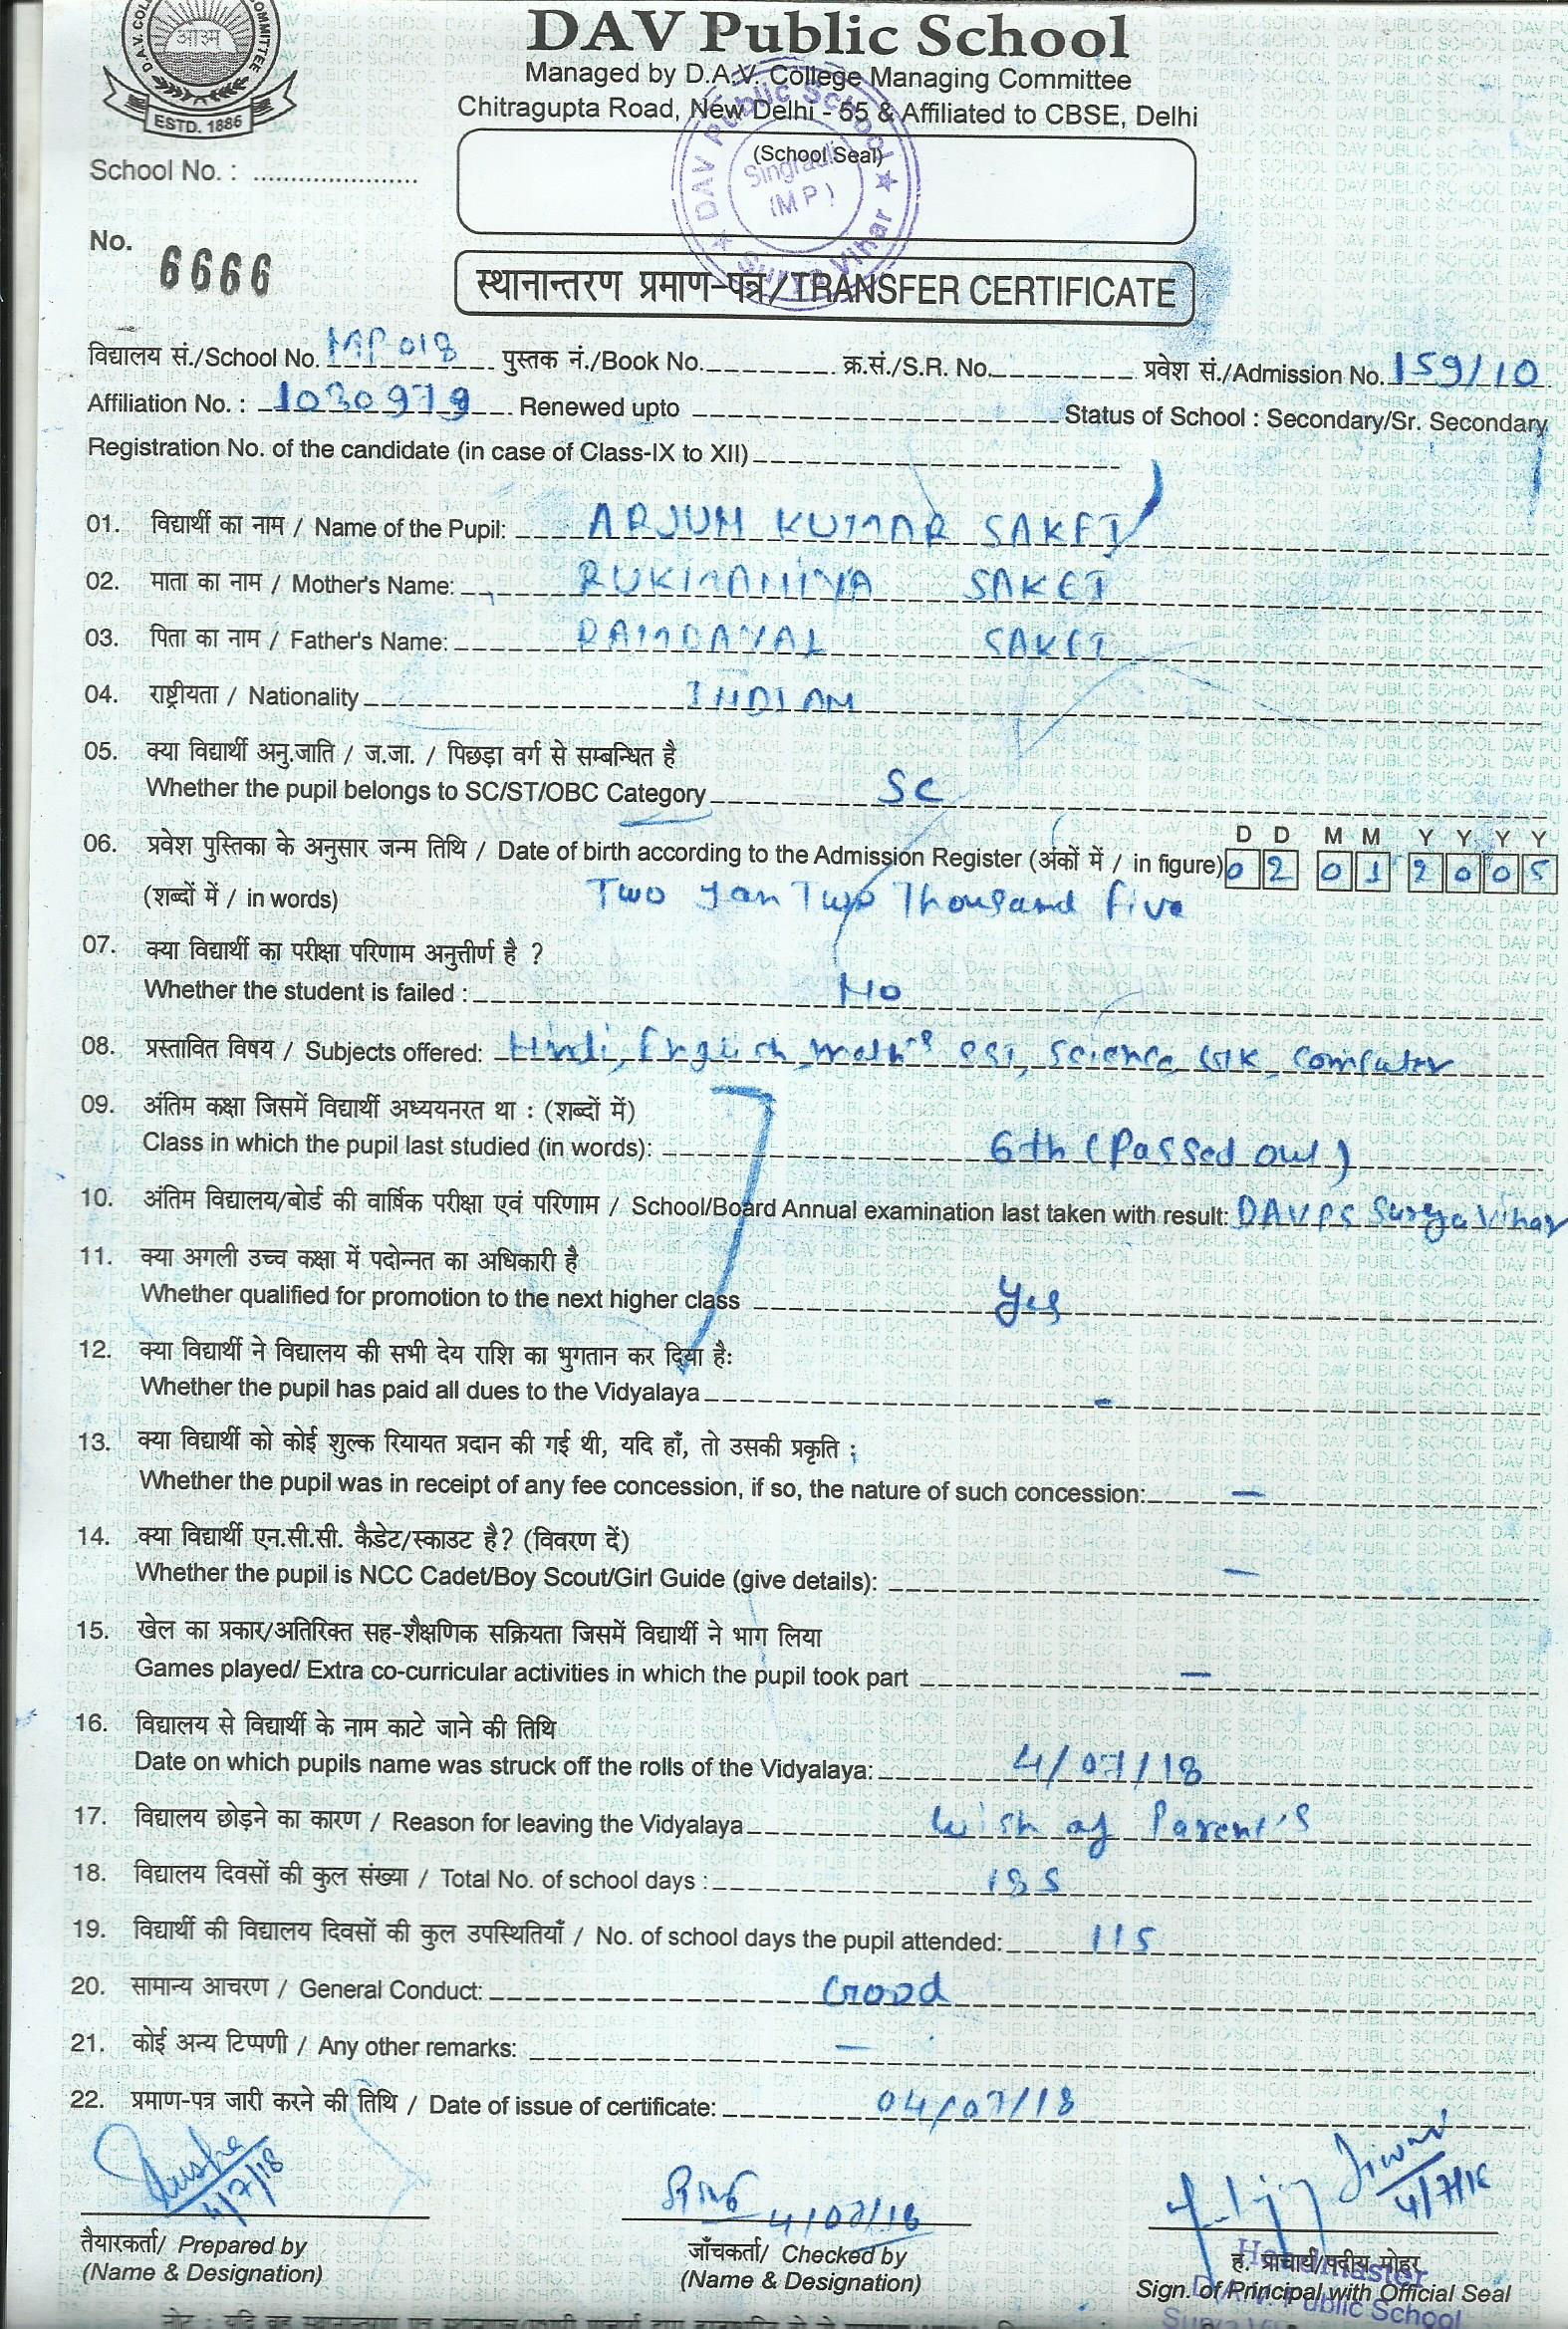 ESTD. 1886
DAV Public School
Managed by D.A.V. College Managing Committee
Chitragupta Road, New Delhi - 55 & Affiliated to CBSE, Delhi
(School Seal)
DAV Public School
Singrauli
(M P)
Surya Vihar
School No. : ......................
No. 6666
स्थानान्तरण प्रमाण-पत्र/TRANSFER CERTIFICATE
विद्यालय सं./School No. MP018 पुस्तक नं./Book No. क्र.सं./S.R. No. प्रवेश सं./Admission No. 159/10
Affiliation No. : 1030979 Renewed upto Status of School : Secondary/Sr. Secondary
Registration No. of the candidate (in case of Class-IX to XII)
01. विद्यार्थी का नाम / Name of the Pupil: ARJUN KUMAR SAKET
02. माता का नाम / Mother's Name: SAKET
03. पिता का नाम / Father's Name: RAMDAYAL SAKET
04. राष्ट्रीयता / Nationality INDIAN
05. क्या विद्यार्थी अनु.जाति / ज.जा. / पिछड़ा वर्ग से सम्बन्धित है
Whether the pupil belongs to SC/ST/OBC Category SC
D D M M Y Y Y Y
06. प्रवेश पुस्तिका के अनुसार जन्म तिथि / Date of birth according to the Admission Register (अंकों में / in figure) 02 01 2005
(शब्दों में / in words) Two Jan Two Thousand five
07. क्या विद्यार्थी का परीक्षा परिणाम अनुत्तीर्ण है ?
Whether the student is failed : No
08. प्रस्तावित विषय / Subjects offered: Hindi, English, Math's SST, Science GK, Computer
09. अंतिम कक्षा जिसमें विद्यार्थी अध्ययनरत था : (शब्दों में)
Class in which the pupil last studied (in words): 6th (Passed out)
10. अंतिम विद्यालय/बोर्ड की वार्षिक परीक्षा एवं परिणाम / School/Board Annual examination last taken with result: DAVPS Surya Vihar
11. क्या अगली उच्च कक्षा में पदोन्नत का अधिकारी है
Whether qualified for promotion to the next higher class Yes
12. क्या विद्यार्थी ने विद्यालय की सभी देय राशि का भुगतान कर दिया है:
Whether the pupil has paid all dues to the Vidyalaya -
13. क्या विद्यार्थी को कोई शुल्क रियायत प्रदान की गई थी, यदि हाँ, तो उसकी प्रकृति ;
Whether the pupil was in receipt of any fee concession, if so, the nature of such concession: -
14. क्या विद्यार्थी एन.सी.सी. कैडेट/स्काउट है? (विवरण दें)
Whether the pupil is NCC Cadet/Boy Scout/Girl Guide (give details): -
15. खेल का प्रकार/अतिरिक्त सह-शैक्षणिक सक्रियता जिसमें विद्यार्थी ने भाग लिया
Games played/ Extra co-curricular activities in which the pupil took part -
16. विद्यालय से विद्यार्थी के नाम काटे जाने की तिथि
Date on which pupils name was struck off the rolls of the Vidyalaya: 4/07/18
17. विद्यालय छोड़ने का कारण / Reason for leaving the Vidyalaya Wish of Parent's
18. विद्यालय दिवसों की कुल संख्या / Total No. of school days :
19. विद्यार्थी की विद्यालय दिवसों की कुल उपस्थितियाँ / No. of school days the pupil attended: 115
20. सामान्य आचरण / General Conduct: Good
21. कोई अन्य टिप्पणी / Any other remarks: -
22. प्रमाण-पत्र जारी करने की तिथि / Date of issue of certificate: 04/07/18
4/7/18 4/07/18 4/7/18
तैयारकर्ता/ Prepared by
(Name & Designation)
जाँचकर्ता/ Checked by
(Name & Designation)
ह. प्राचार्य/पदीय मोहर
Sign. of Principal with Official Seal
Headmaster
D.A.V. Public School